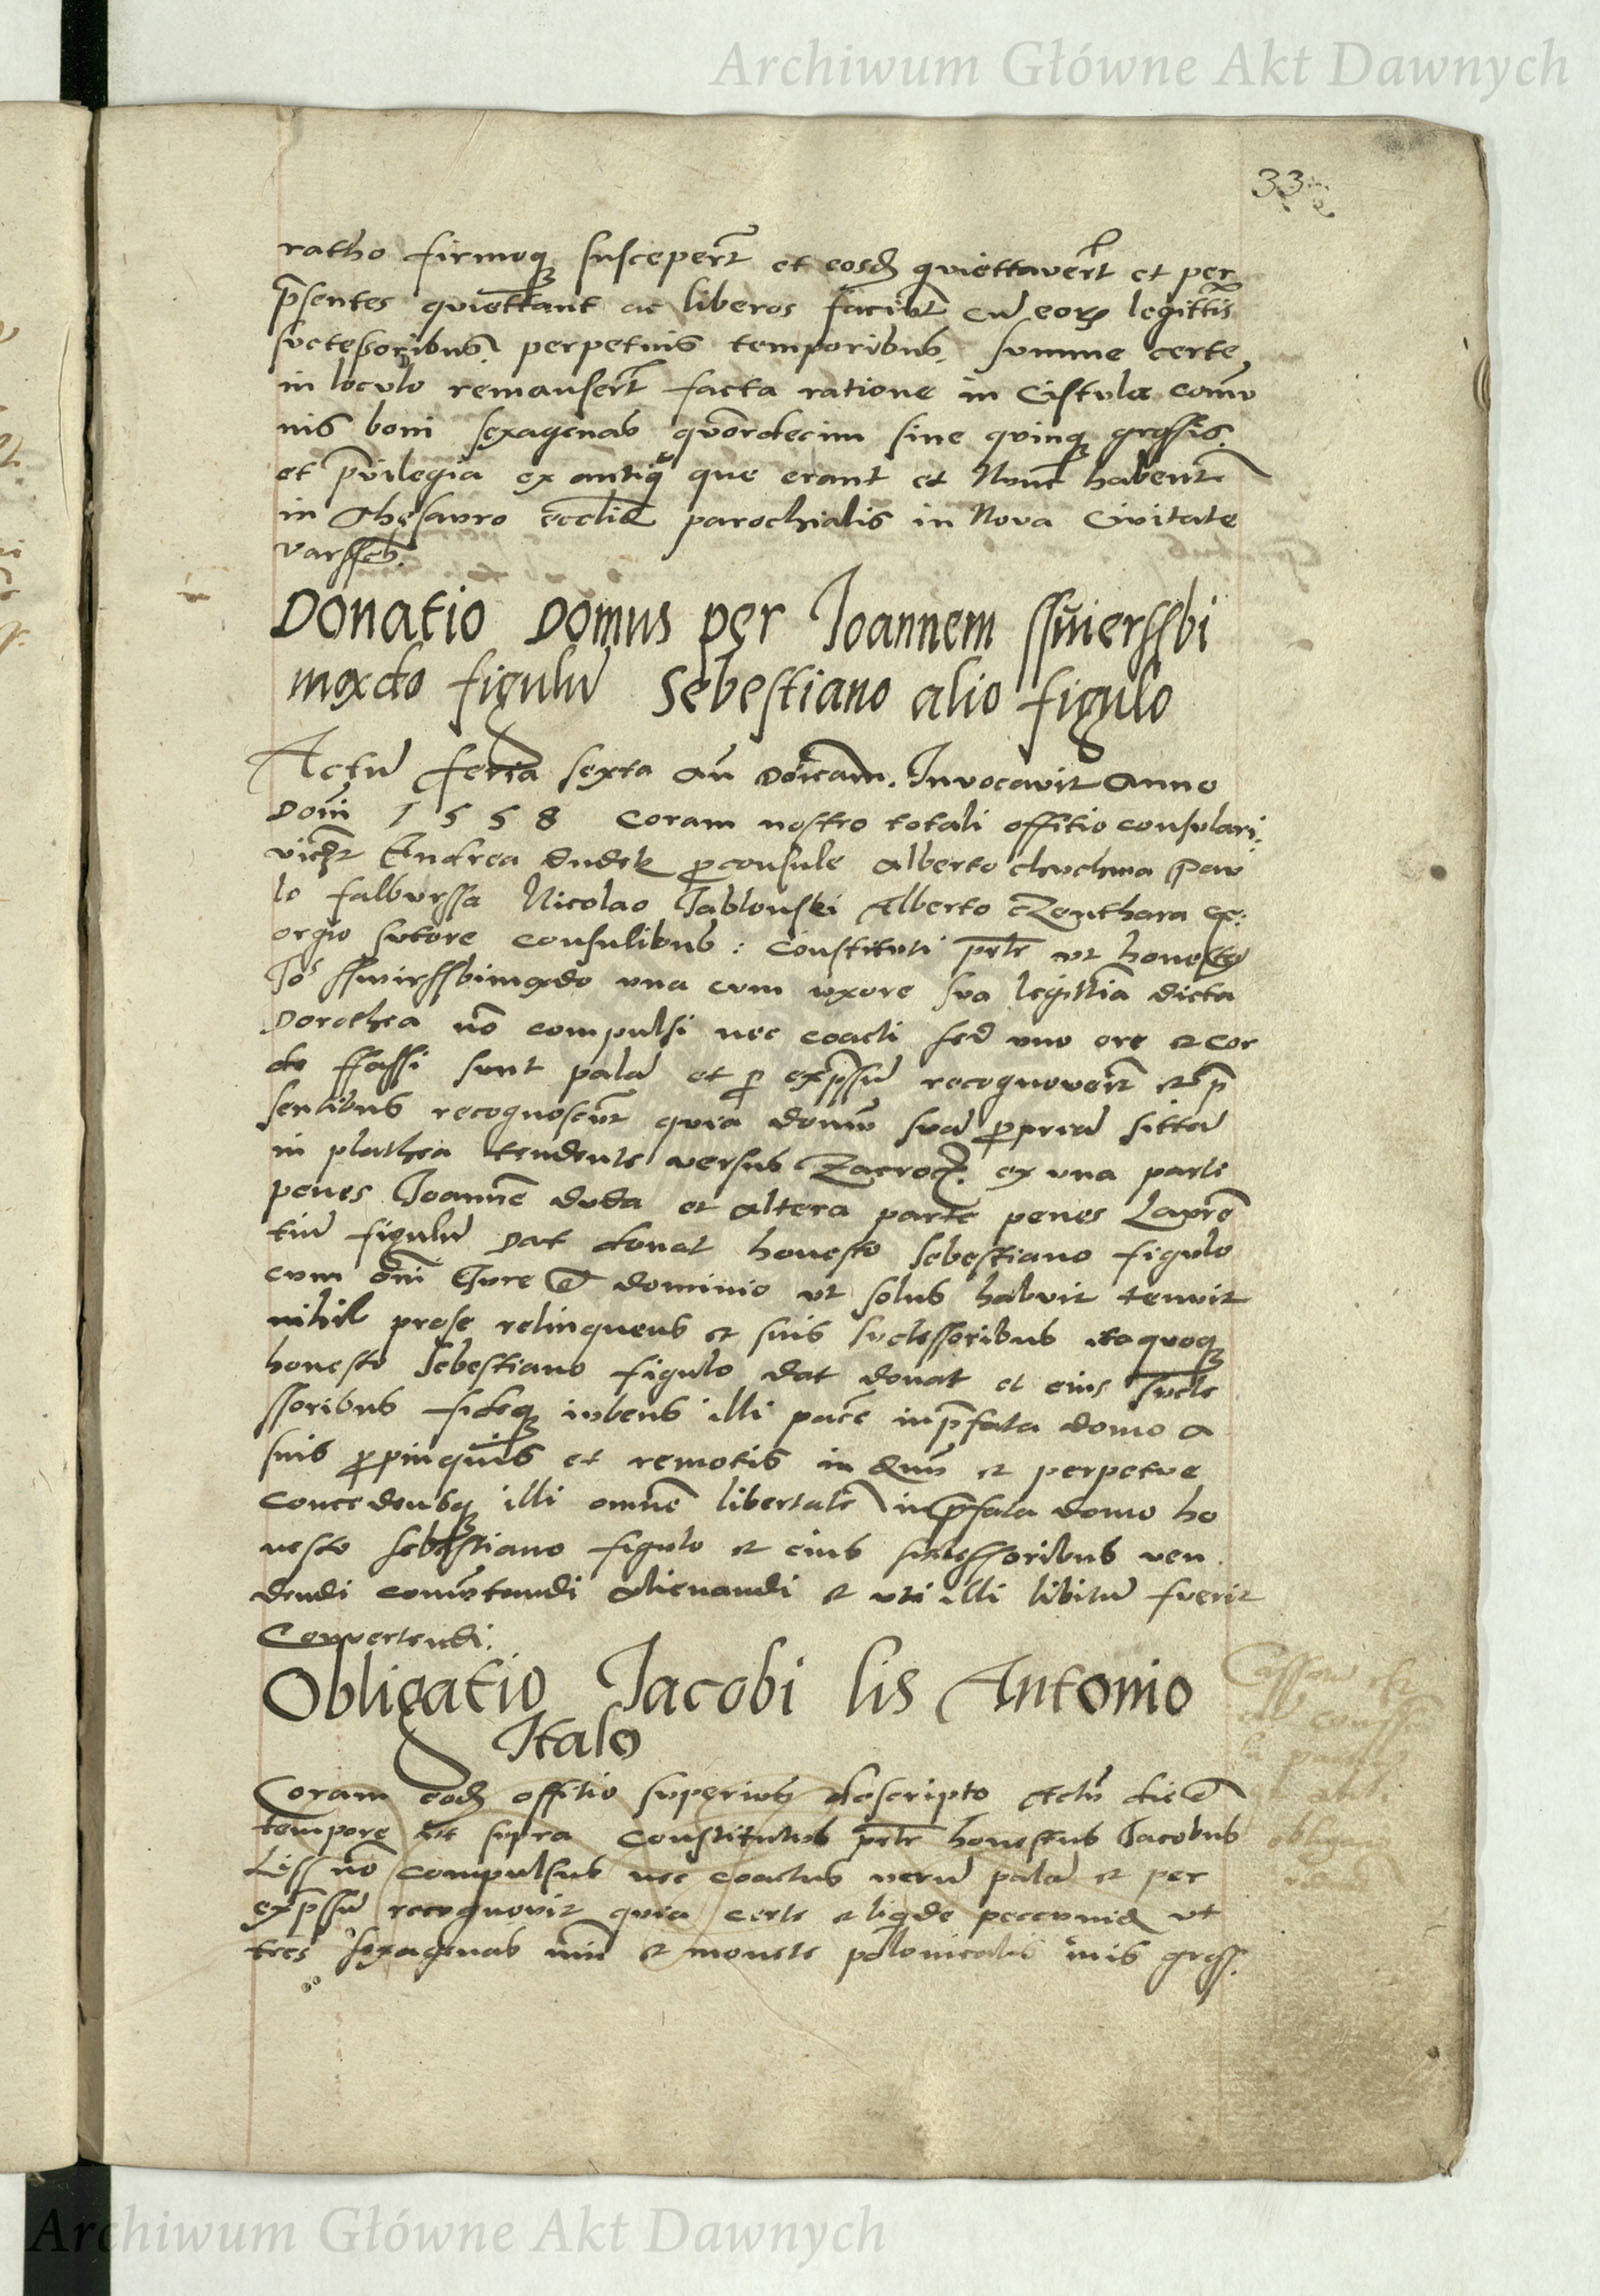 Archiwum Główne Akt Dawnych
33
ratho firmoq susceperūt et eosd quiettaverūt et per
p̄sentes quiettant ac liberos faciūt cū eorꝫ legittīs
suctessoribus perpetuis temporibus. summe certe
in loculo remanserūt facta ratione in Cistula comū
nis boni sexagenas quōrdecim sine quinqꝫ grossis.
et p̄vilegia ex antiq̄ que erant et Nunc habent
in Thesauro ecclīe parochialis in Nova Civitate
varsseb.
Donatio Domus per Joannem ssvierssbi
mxdo figulū Sebestiano alio figulo
Actū feria sexta an̄ Dōicam. Invocavit Anno
Domī 1558 Coram nostro totali offitio consulari.
Andrea dudek ꝓconsule Alberto chuchma Pau
lo falburssa Nicolao Jablonski Alberto Czenthara Ge:
orgio sutore consulibus: Constituti ꝑ̄lr ut
Jos una cum uxore sua legittīa dicta
Dorothea nō compulsi nec coacti sed uno ore et cor
de ffassi sunt palā et ꝑ exp̄ssū recognoverūt et p̄
sentibus recognoscūt quia domū suā ꝓpriā sittā
in plathea tendente versus Zacrocz. ex una parte
penes Joannē duda et altera parte penes Laurē
tiū figulū Dat donat honesto Sebestiano figulo
cum omī Jure et dominio ut solus habuit tenuit
nihil prose relinquens et suis suctessoribus itaquoqꝫ
honesto Sebestiano figulo dat donat et eius sucte
ssoribus fideqꝫ iubens illi pacē inp̄fata domo a
suis ꝓpinquis et remotis in et perpetue
Concedensqꝫ illi omnē libertatē in p̄fata domo ho
nesto Sebestiano figulo et eius suctessoribus ven
dendi comūtandi alienandi et uti illi libitū fuerit
Convertendi.
Obligatio Jacobi lis Antonio
Italo
Coram eod offitio superius descripto Actū die et
tempore ut supra Constitutus ꝑ̄lr honestus Jacobus
Liss nō compulsus nec coactus verū palā et per
exp̄ssū recognovit quia certe et liqde peccunie ut
tres sexagenas et monete polonicalis grss.
obligan
Archiwum Główne Akt Dawnych